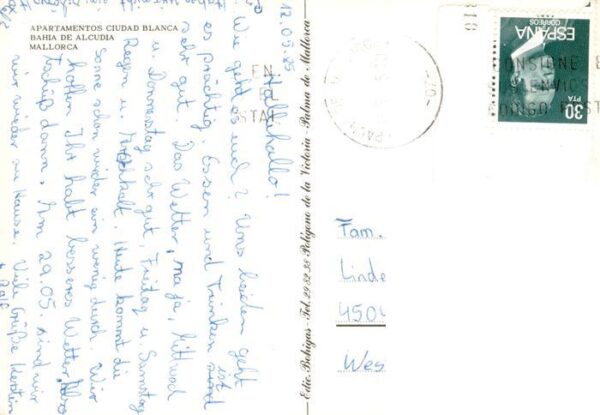 APARTAMENTOS CIUDAD BLANCA
BAHIA DE ALCUDIA
MALLORCA
12.05.85
Hallihallo!
Wie geht es euch? Uns beiden geht
es prächtig. Essen und Trinken ist
sehr gut. Das Wetter, na ja, Mittwoch
u. Donnerstag sehr gut, Freitag u. Samstag
Regen u. kalt. Heute kommt die
Sonne schon wieder ein wenig durch. Wir
hoffen Ihr habt besseres Wetter. Also
tschüß dann. Am 29.05. sind wir
wir wieder zu Hause. Viele Grüße Kerstin
+ Ralf
Edic. Bohigas - Tel. 29.82.38 Polígono de la Victoria - Palma de Mallorca
ESPAÑA
CORREOS
30
PTA
CONSIGNE
ENVIOS
CODIGO POSTA
Fam.
Linde
450
Wes